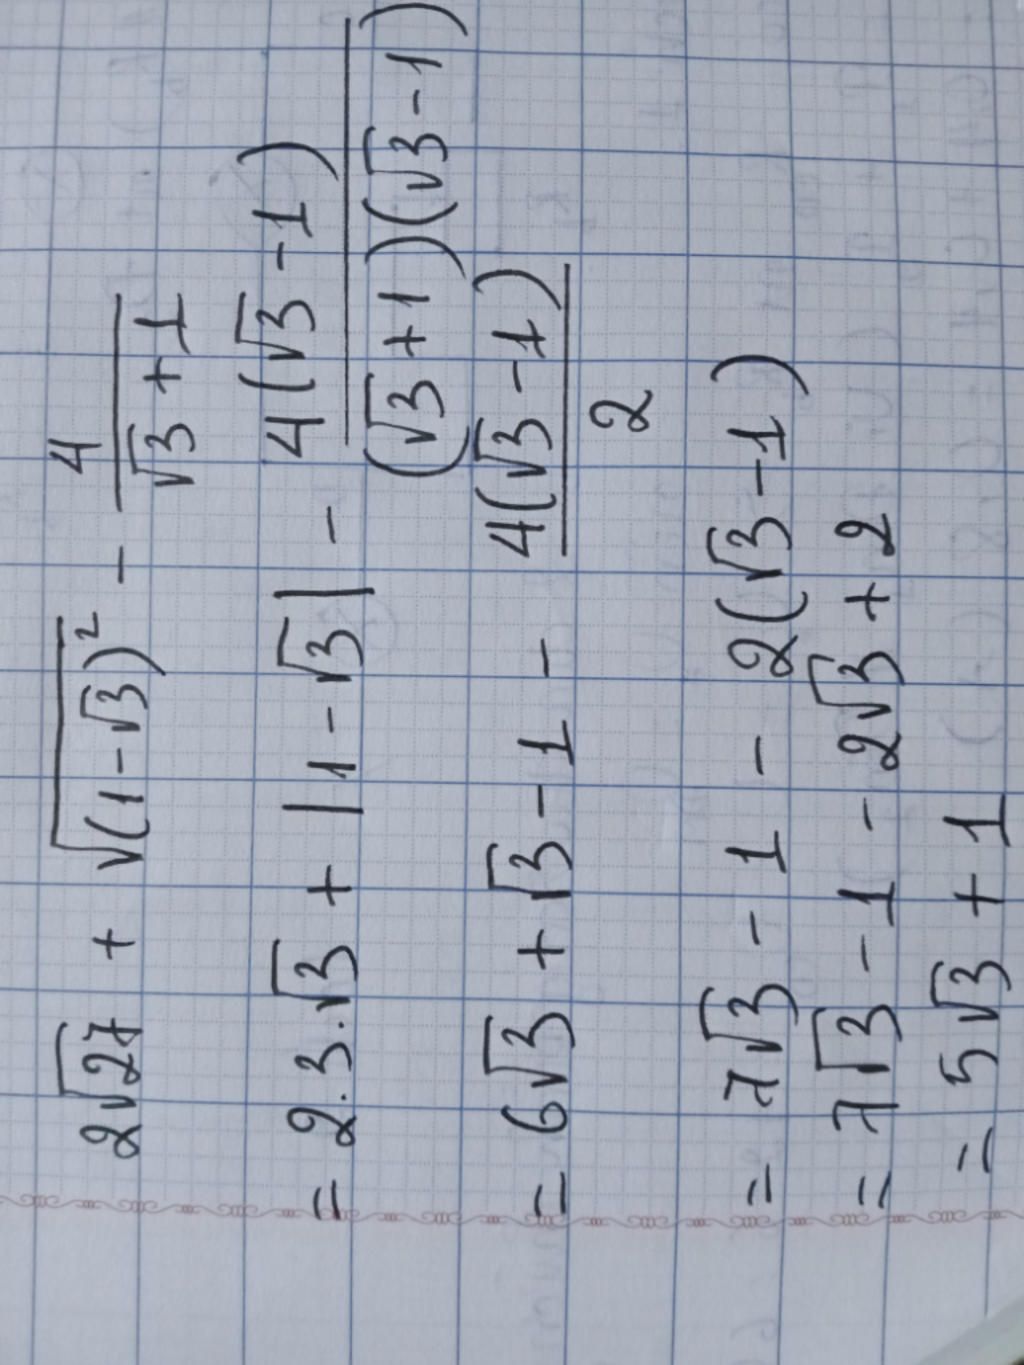 2√27 + √(1-√3)² - 4/(√3+1)
= 2.3.√3 + |1-√3| - 4(√3-1)/((√3+1)(√3-1))
= 6√3 + √3 - 1 - 4(√3-1)/2
= 7√3 - 1 - 2(√3-1)
= 7√3 - 1 - 2√3 + 2
= 5√3 + 1